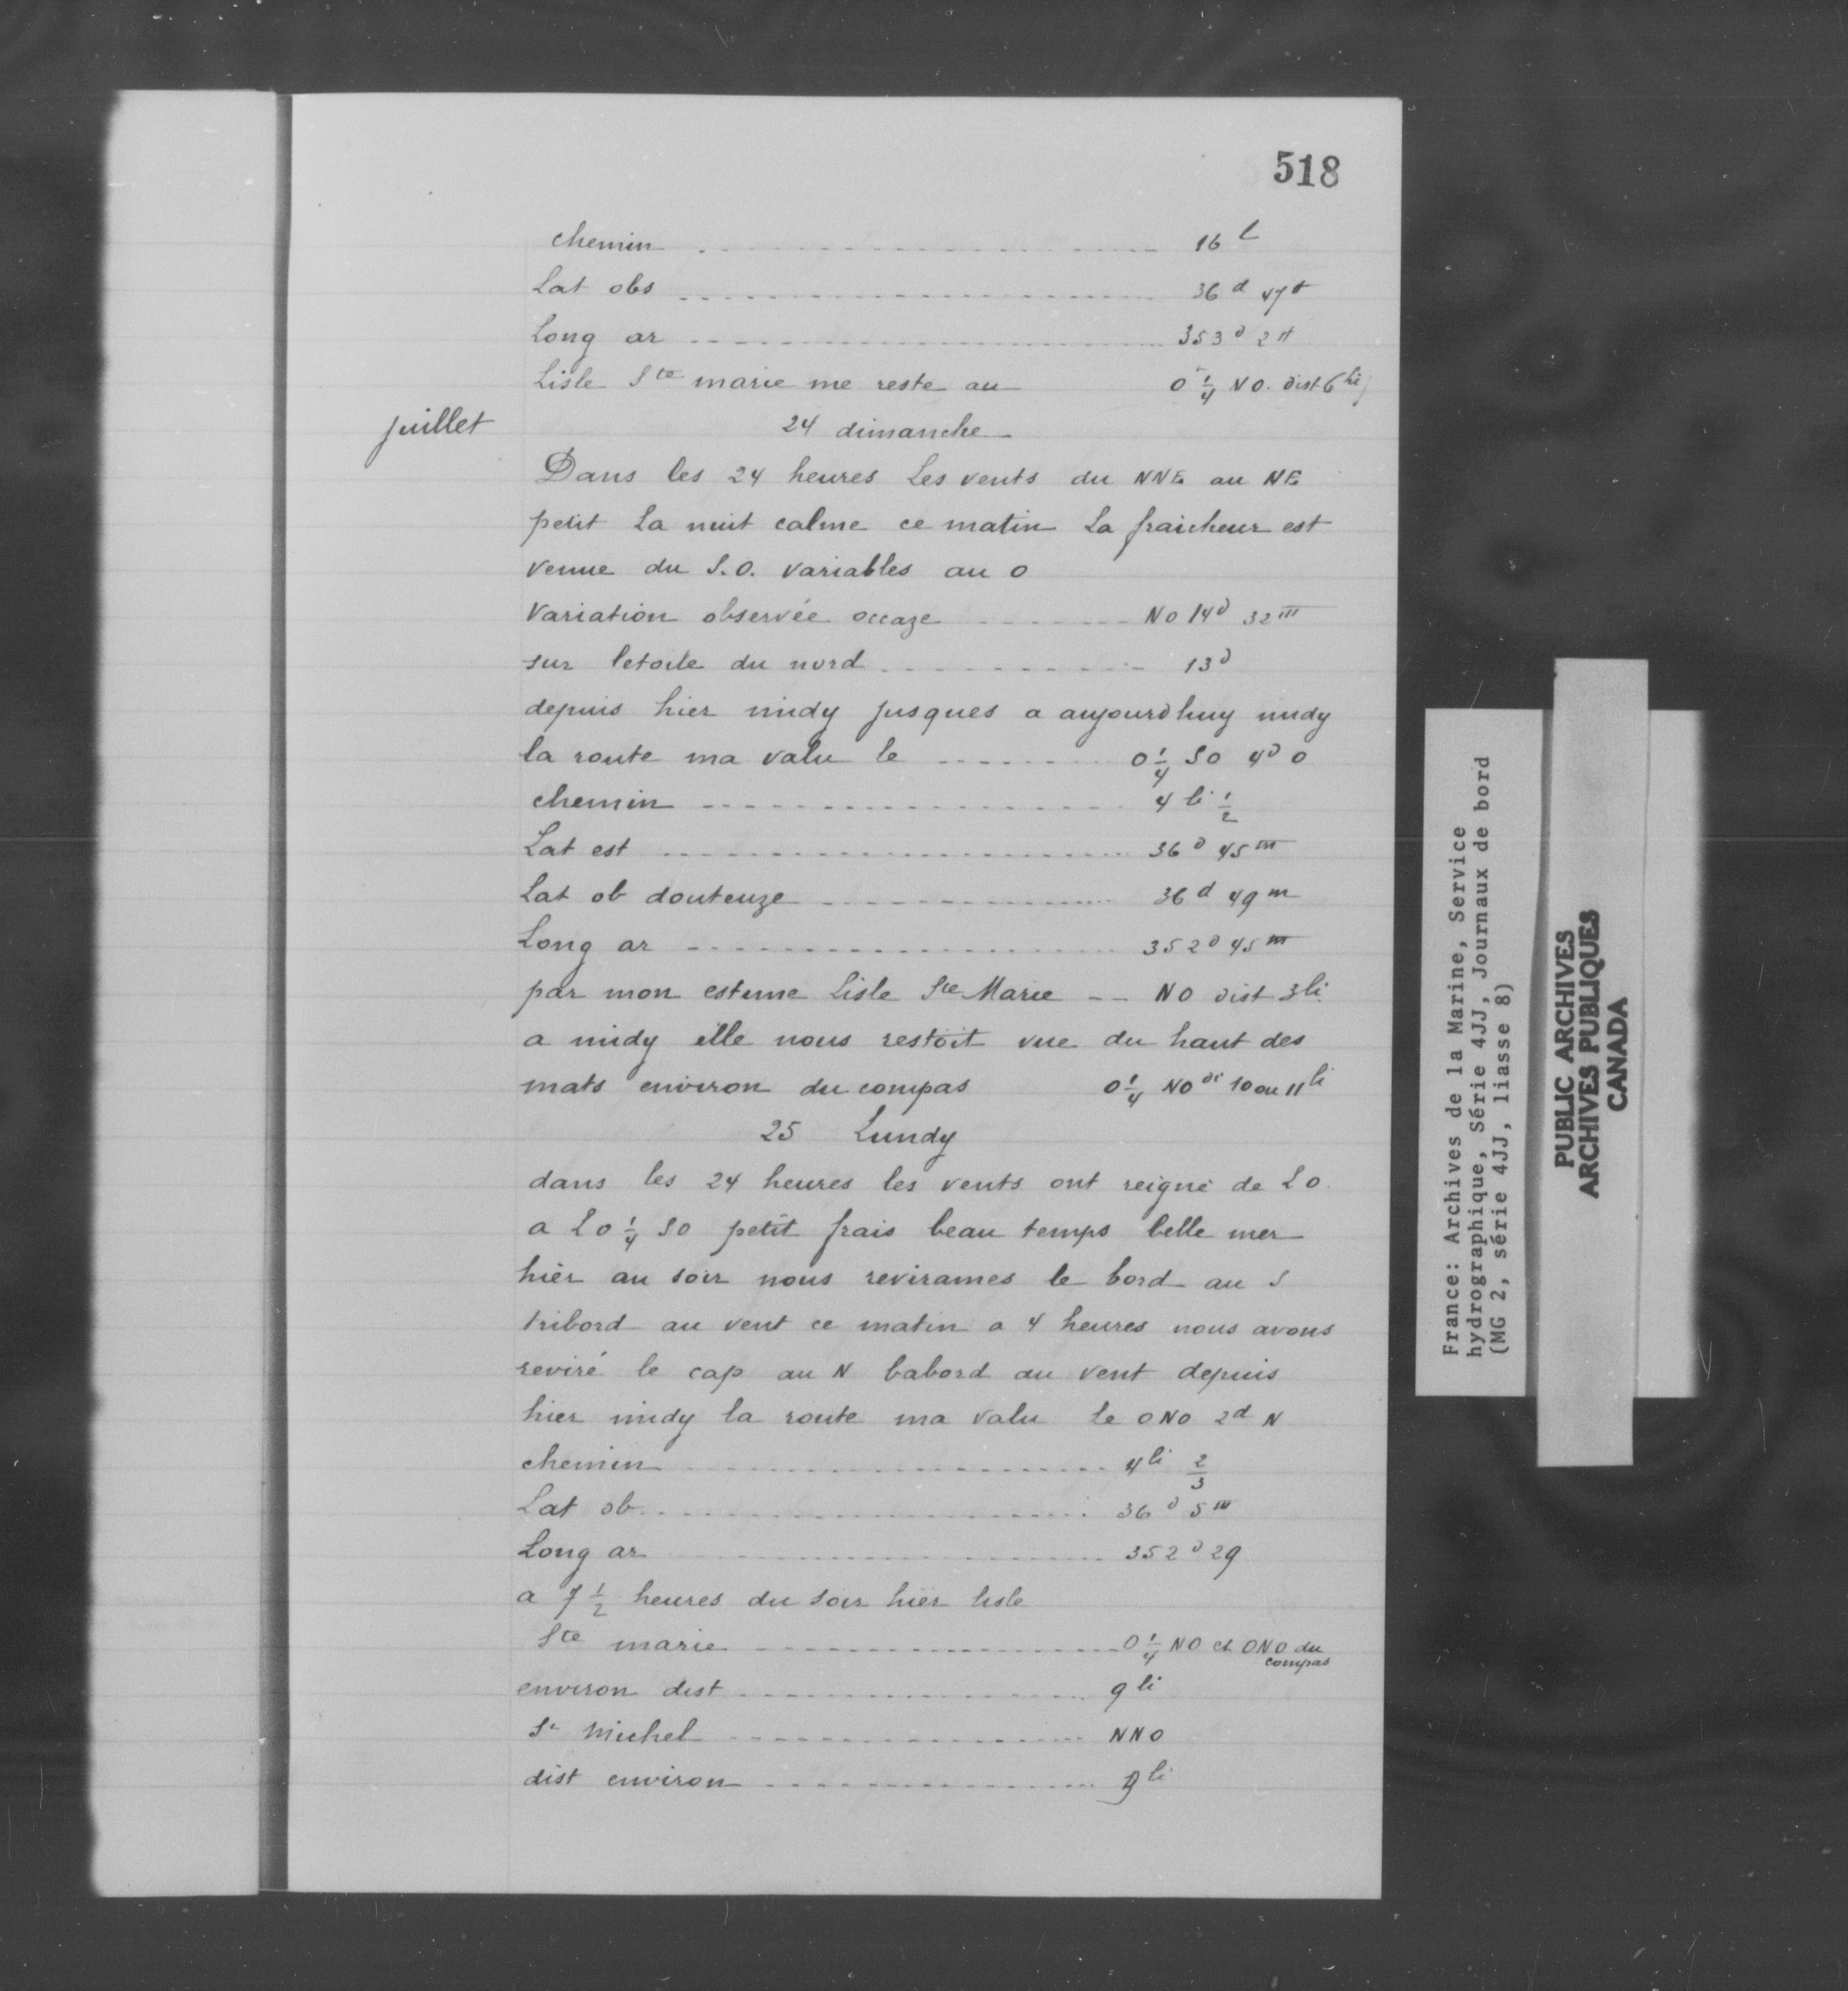 518
chemin 16 l
Lat obs 36 d 47
Long ar 353 d 2
Lisle Ste marie me reste au O 1/4 NO. dist 6 li
juillet
24 dimanche
Dans les 24 heures Les vents du NNE au NE
petit La nuit calme ce matin La fraicheur est
venue du S.O. variables au O
Variation observée occaze NO 14d 32m
sur letoile du nord 13d
depuis hier midy jusques a aujourdhuy midy
la route ma valu le O 1/4 SO 4d O
chemin 4 li 1/2
Lat est 36d 45m
Lat ob douteuze 36d 49m
Long ar 352d 45m
par mon estime Lisle Ste Marie -- NO dist 3li
a midy elle nous restoit vue du haut des
mats environ du compas O 1/4 NO di 10 ou 11li
25 Lundy
dans les 24 heures les vents ont reigné de LO
a LO 1/4 SO petit frais beau temps belle mer
hièr au soir nous revirames le bord au S
tribord au vent ce matin a 4 heures nous avons
reviré le cap au N babord au vent depuis
hier midy la route ma valu le ONO 2d N
chemin 4li 2/3
Lat ob 36d 5m
Long ar 352d 29
a 7 1/2 heures du soir hièr lisle
Ste marie O 1/4 NO et ONO du
compas
environ dist 9li
St Michel NNO
dist environ li
France: Archives de la Marine, Service
hydrographique, Série 4JJ, Journaux de bord
(MG 2, série 4JJ, liasse 8)
PUBLIC ARCHIVES
ARCHIVES PUBLIQUES
CANADA